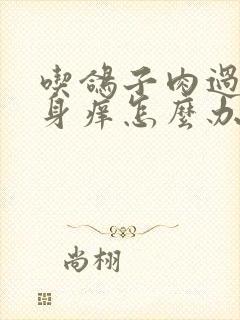 喫鴿子肉過
身癢怎麼办
尚栩